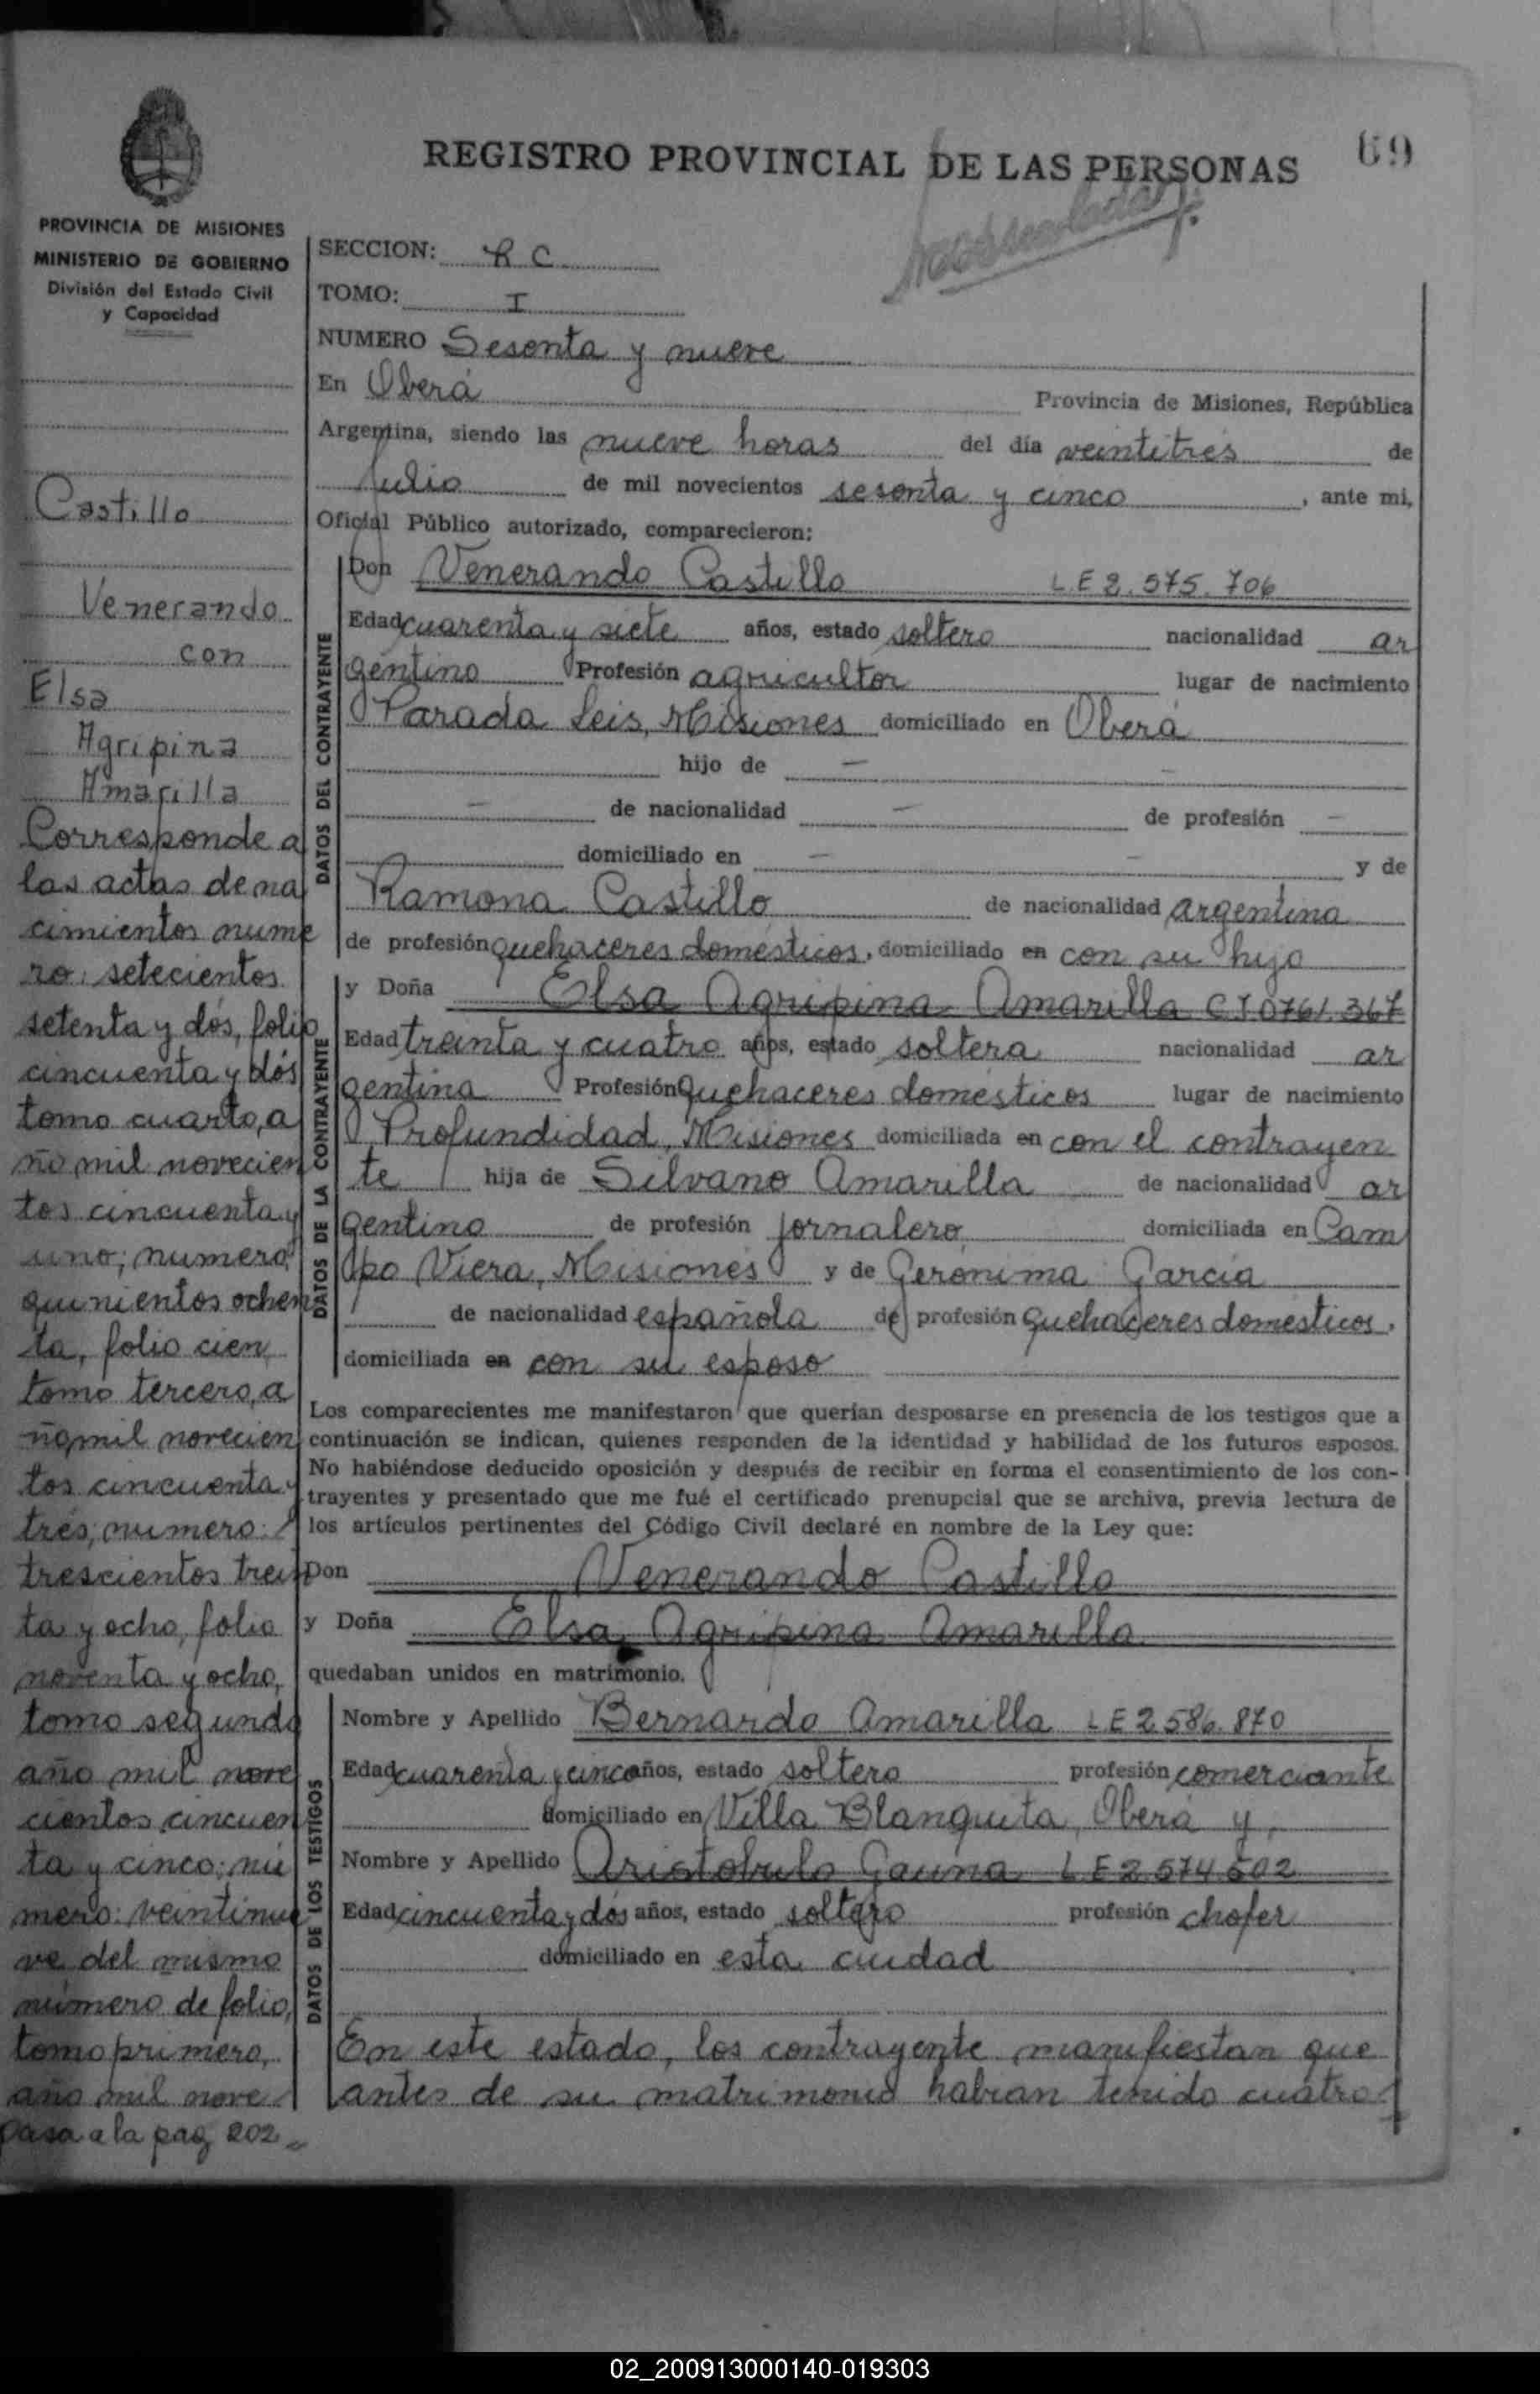 REGISTRO PROVINCIAL DE LAS PERSONAS
69
PROVINCIA DE MISIONES
MINISTERIO DE GOBIERNO
División del Estado Civil
y Capacidad
Castillo
Venerando
con
Elsa
Agripina
Amarilla
Corresponde a
las actas de na
cimientos nume
ro: setecientos
setenta y dós, folio
cincuenta y dós
tomo cuarto, a
ño mil novecien
tos cincuenta y
uno; numero:
quinientos ochen
ta, folio cien
tomo tercero, a
ño mil novecien
tos cincuenta y
trés; numero:
trescientos trein
ta y ocho, folio
noventa y ocho,
tomo segundo
año mil nove
cientos cincuen
ta y cinco; nú
mero: veintinue
ve del mismo
número de folio,
tomo primero,
año mil nove
pasa a la pag 202
SECCION: R C
TOMO: I
NUMERO Sesenta y nueve
En Oberá Provincia de Misiones, República
Argentina, siendo las nueve horas del día veintitrés de
Julio de mil novecientos sesenta y cinco, ante mi,
Oficial Público autorizado, comparecieron:
DATOS DEL CONTRAYENTE
Don Venerando Castillo LE 2.575.706
Edad cuarenta y siete años, estado soltero nacionalidad ar
gentino Profesión agricultor lugar de nacimiento
Parada Leis, Misiones domiciliado en Oberá
hijo de —
— de nacionalidad — de profesión —
domiciliado en — — y de
Ramona Castillo de nacionalidad argentina
de profesión quehaceres domésticos, domiciliado en con su hijo
DATOS DE LA CONTRAYENTE
y Doña Elsa Agripina Amarilla C I 0761.367
Edad treinta y cuatro años, estado soltera nacionalidad ar
gentina Profesión Quehaceres domésticos lugar de nacimiento
Profundidad, Misiones domiciliada en con el contrayen
te hija de Silvano Amarilla de nacionalidad ar
gentino de profesión jornalero domiciliada en Cam
po Viera, Misiones y de Gerónima García
de nacionalidad española de profesión quehaceres domésticos,
domiciliada en con su esposo
Los comparecientes me manifestaron que querían desposarse en presencia de los testigos que a
continuación se indican, quienes responden de la identidad y habilidad de los futuros esposos.
No habiéndose deducido oposición y después de recibir en forma el consentimiento de los con-
trayentes y presentado que me fué el certificado prenupcial que se archiva, previa lectura de
los artículos pertinentes del Código Civil declaré en nombre de la Ley que:
Don Venerando Castillo
y Doña Elsa Agripina Amarilla
quedaban unidos en matrimonio.
DATOS DE LOS TESTIGOS
Nombre y Apellido Bernardo Amarilla LE 2.586.870
Edad cuarenta y cinco años, estado soltero profesión comerciante
domiciliado en Villa Blanquita, Oberá y,
Nombre y Apellido Aristobulo Gauna LE 2.574.502
Edad cincuenta y dós años, estado soltero profesión chofer
domiciliado en esta ciudad
En este estado, los contrayente manifiestan que
antes de su matrimonio habian tenido cuatro
02_200913000140-019303